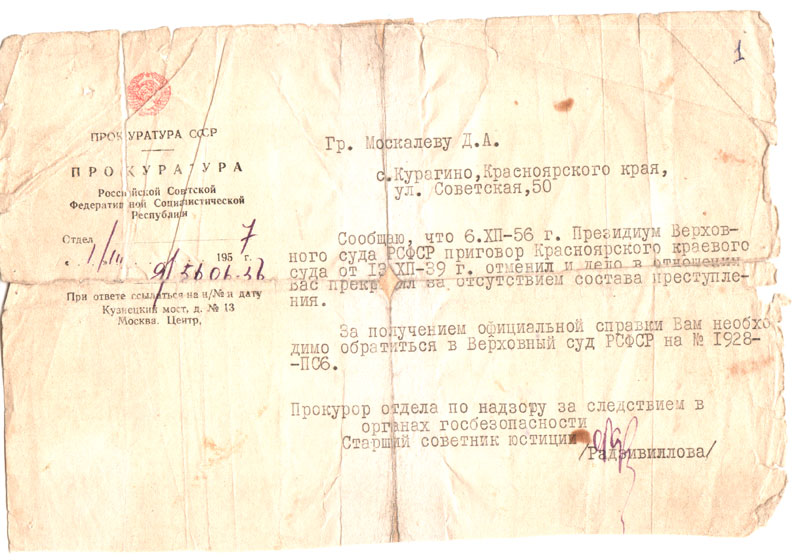 1
ПРОКУРАТУРА СССР
ПРОКУРАТУРА
Российской Советской
Федеративной Социалистической
Республики
Отдел
1/III 1957 г.
При ответе ссылаться на н/№ и дату
Кузнецкий мост, д. № 13
Москва. Центр,
Гр. Москалеву Д.А.
с.Курагино,Красноярского края,
ул. Советская,50
Сообщаю, что 6.ХП-56 г. Президиум Верхов-
ного суда РСФСР приговор Красноярского краевого
суда от 13 ХП-39 г. отменил и дело в отношении
Вас прекратил за отсутствием состава преступле-
ния.
За получением официальной справки Вам необхо
димо обратиться в Верховный суд РСФСР на № 1928-
-ПС6.
Прокурор отдела по надзору за следствием в
органах госбезопасности
Старший советник юстиции
/Радзивиллова/